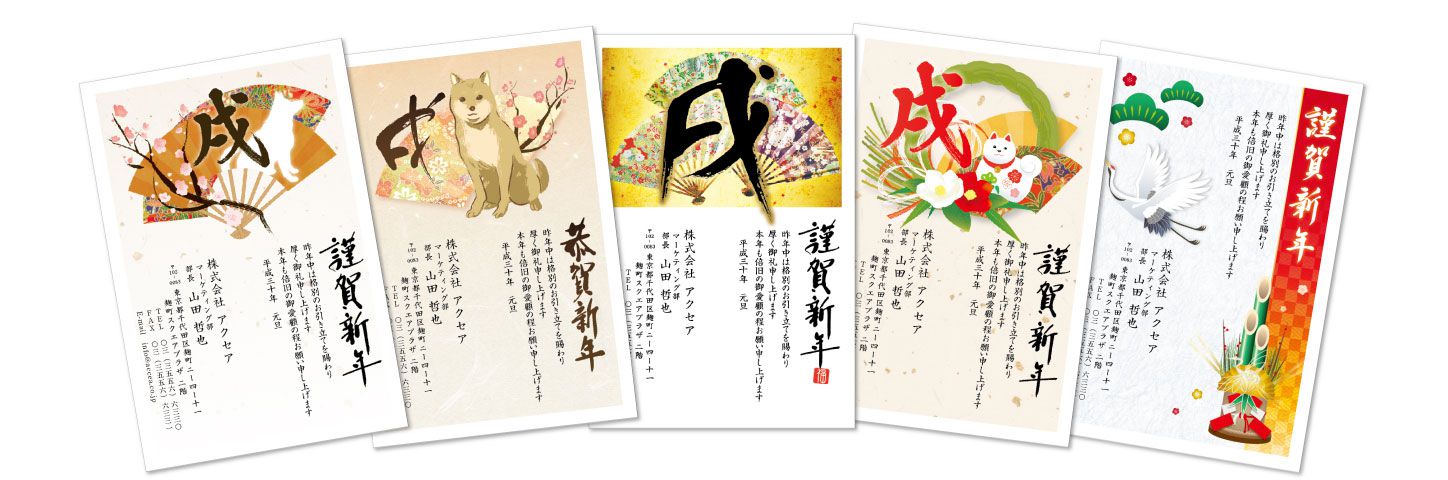 戌
謹賀新年
昨年中は格別のお引き立てを賜わり
厚く御礼申し上げます
本年も倍旧の御愛顧の程お願い申し上げます
平成三十年　元旦
株式会社 アクセア
マーケティング部
部長　山田 哲也
〒102-0083　東京都千代田区麹町二ー四ー十一
麹町スクエアプラザ 二階
TEL　〇三(三五五六)六三三〇
E-mail　info@accea.co.jp
戌
恭賀新年
昨年中は格別のお引き立てを賜わり
厚く御礼申し上げます
本年も倍旧の御愛顧の程お願い申し上げます
平成三十年　元旦
株式会社 アクセア
マーケティング部
部長　山田 哲也
〒102-0083　東京都千代田区麹町二ー四ー十一
麹町スクエアプラザ 二階
TEL　〇三(三五五六)六三三〇
戌
謹賀新年
昨年中は格別のお引き立てを賜わり
厚く御礼申し上げます
本年も倍旧の御愛顧の程お願い申し上げます
平成三十年　元旦
株式会社 アクセア
マーケティング部
部長　山田 哲也
〒102-0083　東京都千代田区麹町二ー四ー十一
麹町スクエアプラザ 二階
TEL　〇三(三五五六)六三三〇
戌
謹賀新年
昨年中は格別のお引き立てを賜わり
厚く御礼申し上げます
本年も倍旧の御愛顧の程お願い申し上げます
平成三十年　元旦
株式会社 アクセア
マーケティング部
部長　山田 哲也
〒102-0083　東京都千代田区麹町二ー四ー十一
麹町スクエアプラザ 二階
TEL　〇三(三五五六)六三三〇
謹賀新年
昨年中は格別のお引き立てを賜わり
厚く御礼申し上げます
本年も倍旧の御愛顧の程お願い申し上げます
平成三十年　元旦
株式会社 アクセア
マーケティング部
部長　山田 哲也
〒102-0083　東京都千代田区麹町二ー四ー十一
麹町スクエアプラザ 二階
TEL　〇三(三五五六)六三三〇